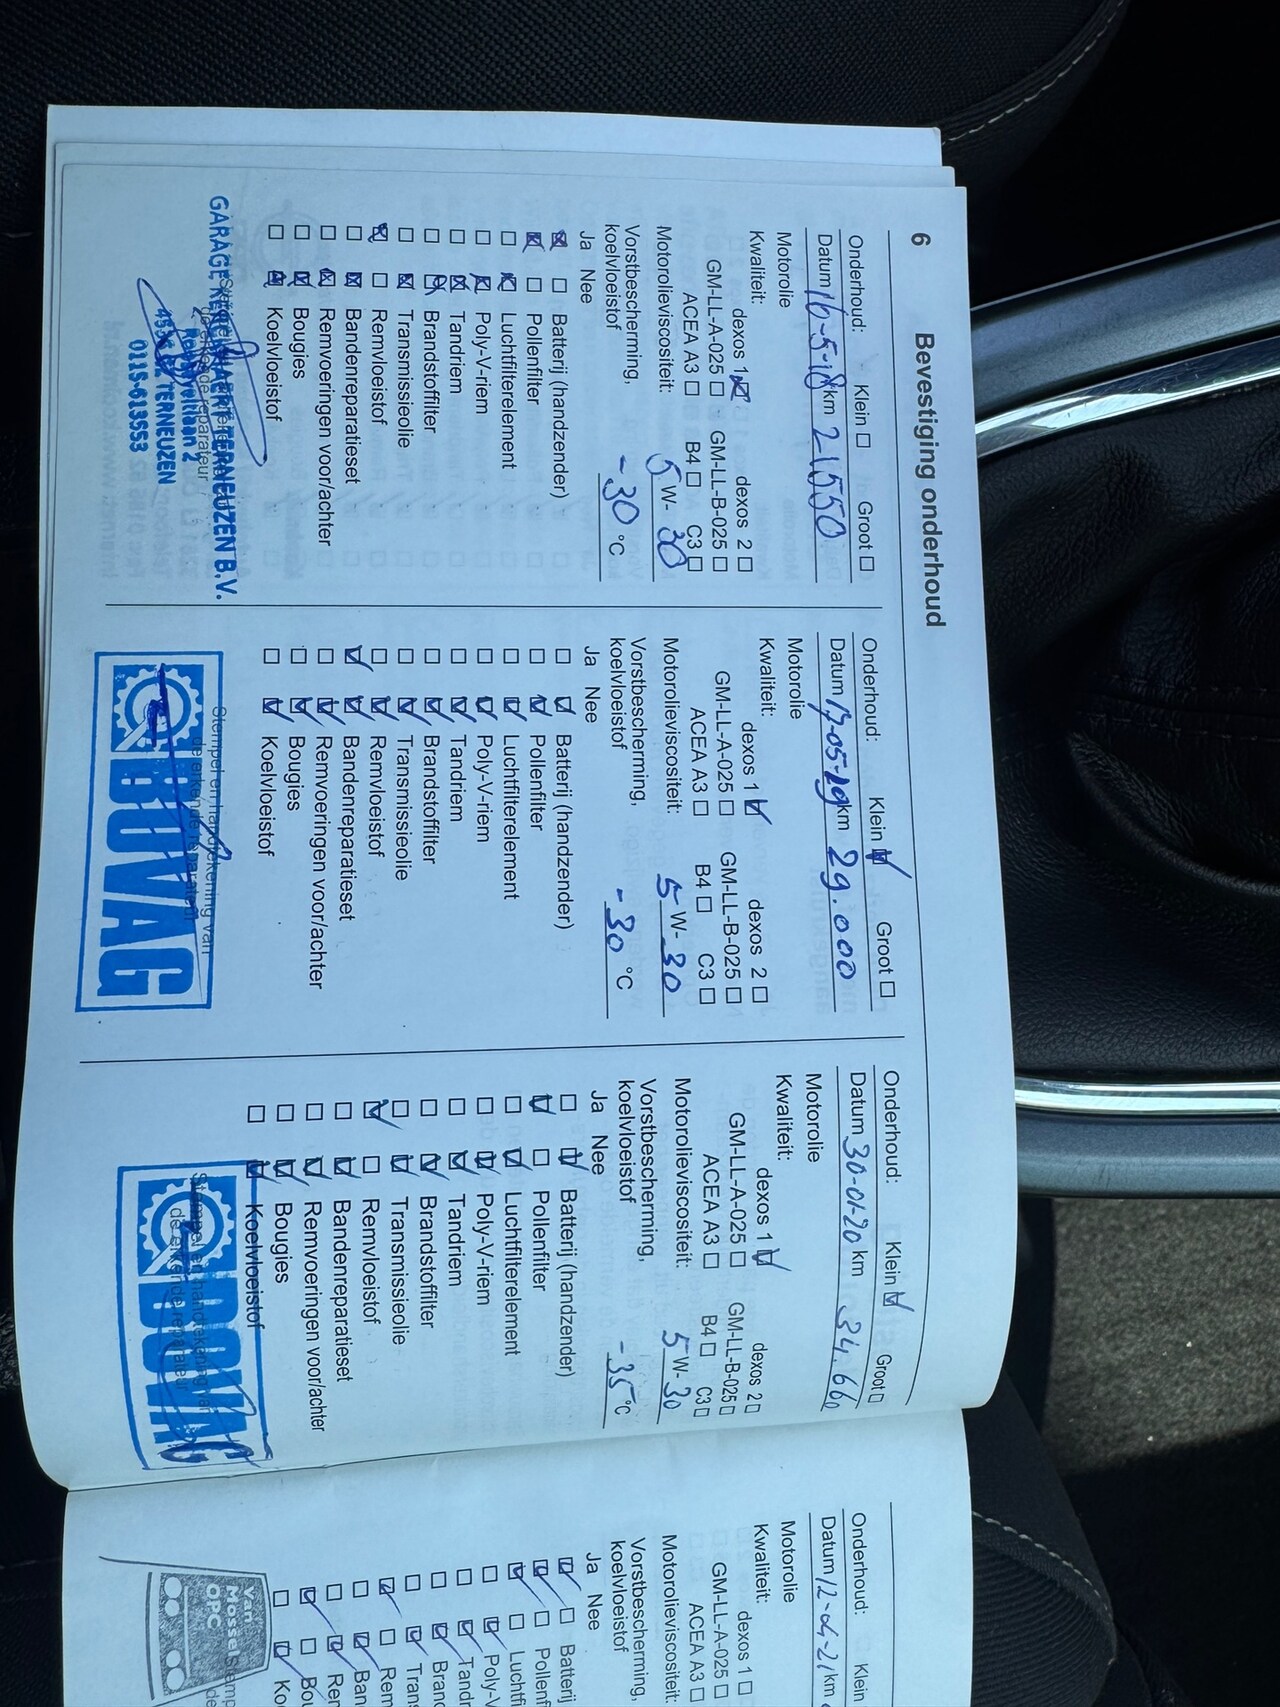 6
Bevestiging onderhoud
Onderhoud: Klein ☐ Groot ☐
Datum 16-5-18 km 21550
Motorolie
Kwaliteit: dexos 1 ☒ dexos 2 ☐
GM-LL-A-025 ☐ GM-LL-B-025 ☐
ACEA A3 ☐ B4 ☐ C3 ☐
Motorolieviscositeit: 5 W- 30
Vorstbescherming,
koelvloeistof -30 °C
Ja Nee
☒ ☐ Batterij (handzender)
☒ ☐ Pollenfilter
☐ ☒ Luchtfilterelement
☐ ☒ Poly-V-riem
☐ ☒ Tandriem
☐ ☒ Brandstoffilter
☐ ☒ Transmissieolie
☒ ☐ Remvloeistof
☐ ☒ Bandenreparatieset
☐ ☒ Remvoeringen voor/achter
☐ ☒ Bougies
☐ ☒ Koelvloeistof
de erkende reparateur
TERNEUZEN B.V.
TERNEUZEN
0115-613553
Onderhoud: Klein ☑ Groot ☐
Datum 17-05-19 km 29.000
Motorolie
Kwaliteit: dexos 1 ☑ dexos 2 ☐
GM-LL-A-025 ☐ GM-LL-B-025 ☐
ACEA A3 ☐ B4 ☐ C3 ☐
Motorolieviscositeit: 5 W- 30
Vorstbescherming,
koelvloeistof -30 °C
Ja Nee
☐ ☑ Batterij (handzender)
☐ ☑ Pollenfilter
☐ ☑ Luchtfilterelement
☐ ☑ Poly-V-riem
☐ ☑ Tandriem
☐ ☑ Brandstoffilter
☐ ☑ Transmissieolie
☐ ☑ Remvloeistof
☑ ☑ Bandenreparatieset
☐ ☑ Remvoeringen voor/achter
☐ ☑ Bougies
☐ ☑ Koelvloeistof
Stempel en handtekening van
de erkende reparateur
BOVAG
Onderhoud: Klein ☑ Groot ☐
Datum 30-01-20 km 34.660
Motorolie
Kwaliteit: dexos 1 ☑ dexos 2 ☐
GM-LL-A-025 ☐ GM-LL-B-025 ☐
ACEA A3 ☐ B4 ☐ C3 ☐
Motorolieviscositeit: 5 W- 30
Vorstbescherming,
koelvloeistof -35 °C
Ja Nee
☐ ☑ Batterij (handzender)
☑ ☐ Pollenfilter
☐ ☑ Luchtfilterelement
☐ ☑ Poly-V-riem
☐ ☑ Tandriem
☐ ☑ Brandstoffilter
☐ ☑ Transmissieolie
☑ ☐ Remvloeistof
☐ ☑ Bandenreparatieset
☐ ☑ Remvoeringen voor/achter
☐ ☑ Bougies
☐ ☑ Koelvloeistof
Stempel en handtekening van
de erkende reparateur
BOVAG
Onderhoud: Klein
Datum 12-04-21 km
Motorolie
Kwaliteit: dexos 1 ☐
GM-LL-A-025 ☐
ACEA A3 ☐
Motorolieviscositeit:
Vorstbescherming,
koelvloeistof
Ja Nee
☑ ☐ Batterij
☑ ☐ Pollenf
☑ ☐ Luchtfi
☐ ☑ Poly-V
☐ ☑ Tandr
☐ ☑ Branc
☐ ☑ Tran
☑ ☐ Rem
☐ ☑ Ban
☐ ☑ Rer
☑ ☐ Bou
☐ ☑ Ko
Stemp
de
Van
Mossel
OPC